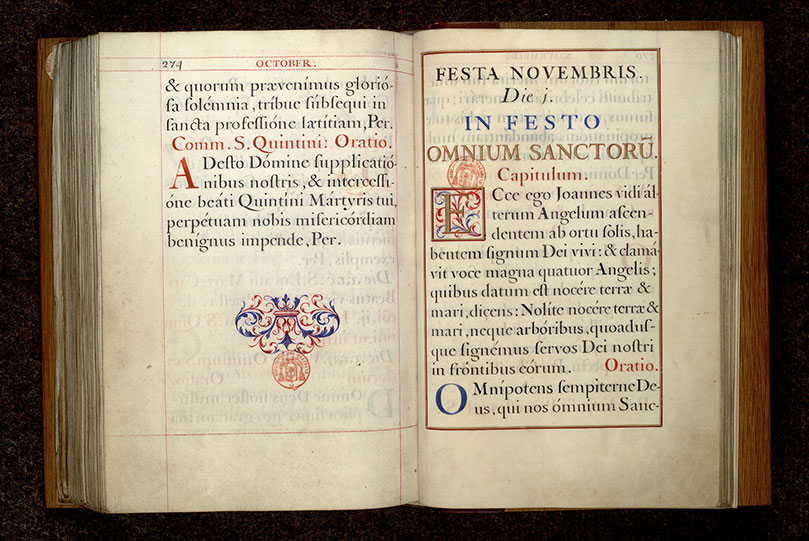 274
OCTOBER.
& quorum prævenimus glorió-
sa solémnia, tríbue súbsequi in
sancta professióne lætítiam, Per.
Comm. S. Quintini: Oratio.
ADesto Dómine supplicatió-
nibus nostris, & intercessi-
óne beáti Quintini Mártyris tui,
perpétuam nobis misericórdiam
benignus impende, Per.
FESTA NOVEMBRIS.
Die j.
IN FESTO
OMNIUM SANCTORŪ.
Capitulum.
ECce ego Joannes vidi ál-
terum Angelum ascen-
dentem ab ortu solis, ha-
bentem signum Dei vivi: & clamá-
vit voce magna quatuor Angelis;
quibus datum est nocére terræ &
mari, dicens: Nolíte nocére terræ &
mari, neque arbóribus, quoadus-
que signémus servos Dei nostri
in fróntibus eórum. Oratio.
OMnípotens sempiterne De-
us, qui nos ómnium Sanc-